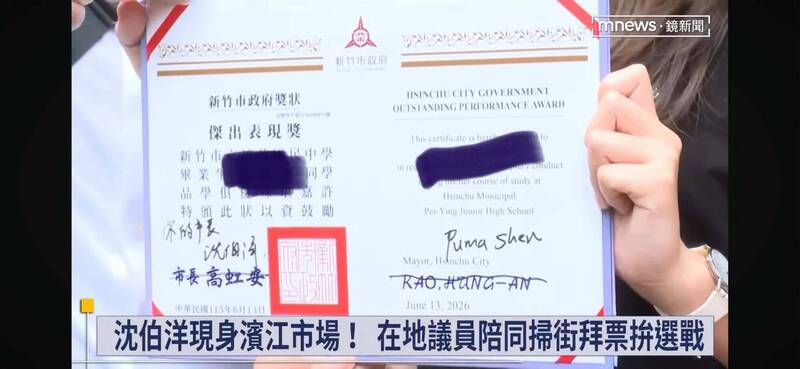 mnews·鏡新聞
新竹市政府
新竹市政府獎狀
傑出表現獎
新竹市立 民中學
畢業生 同學
品學俱 嘉許
特頒此狀以資鼓勵
你的市長
沈伯洋
市長 高虹安
中華民國115年6月13
HSINCHU CITY GOVERNMENT
OUTSTANDING PERFORMANCE AWARD
This certificate is to
in conduct
course of study at
Hsinchu Municipal
Pei-Ying Junior High School
Puma Shen
Mayor, Hsinchu City
KAO, HUNG-AN
June 13, 2026
沈伯洋現身濱江市場！ 在地議員陪同掃街拜票拚選戰